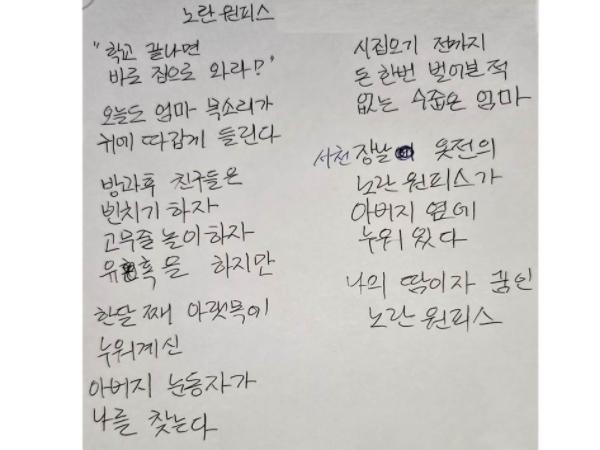 노란 원피스
"학교 끝나면
바로 집으로 와라?"
오늘도 엄마 목소리가
귀에 따갑게 들린다
방과후 친구들은
삔치기 하자
고무줄 놀이 하자
유혹을 하지만
한달 째 아랫목에
누워계신
아버지 눈동자가
나를 찾는다
시집오기 전까지
돈 한번 벌어본 적
없는 수줍은 엄마
서천 장날 옷전의
노란 원피스가
아버지 옆에
누워 있다
나의 땀이자 꿈인
노란 원피스